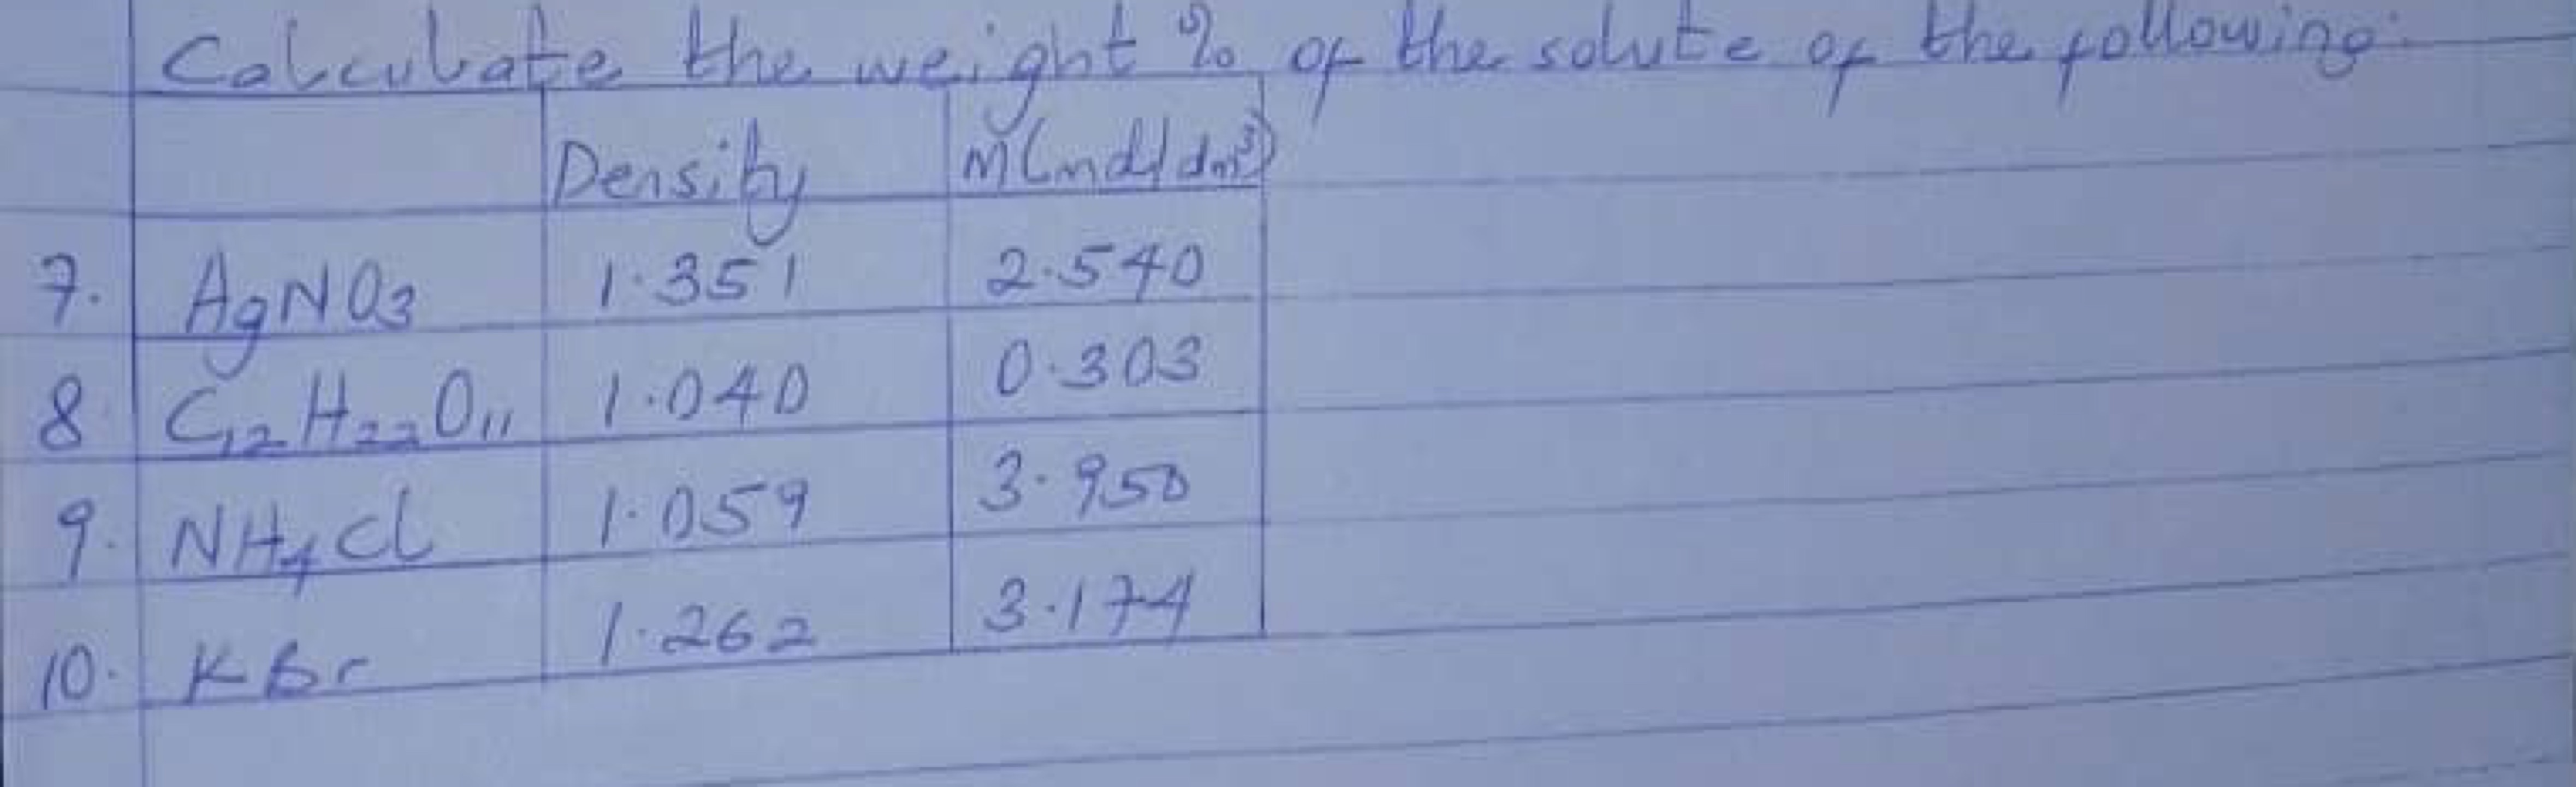 Calculate the weight % of the solute of the following:
Density M(mol/dm³)
7. AgNO₃ 1.351 2.540
8 C₁₂H₂₂O₁₁ 1.040 0.303
9. NH₄Cl 1.059 3.950
10. KBr 1.262 3.174